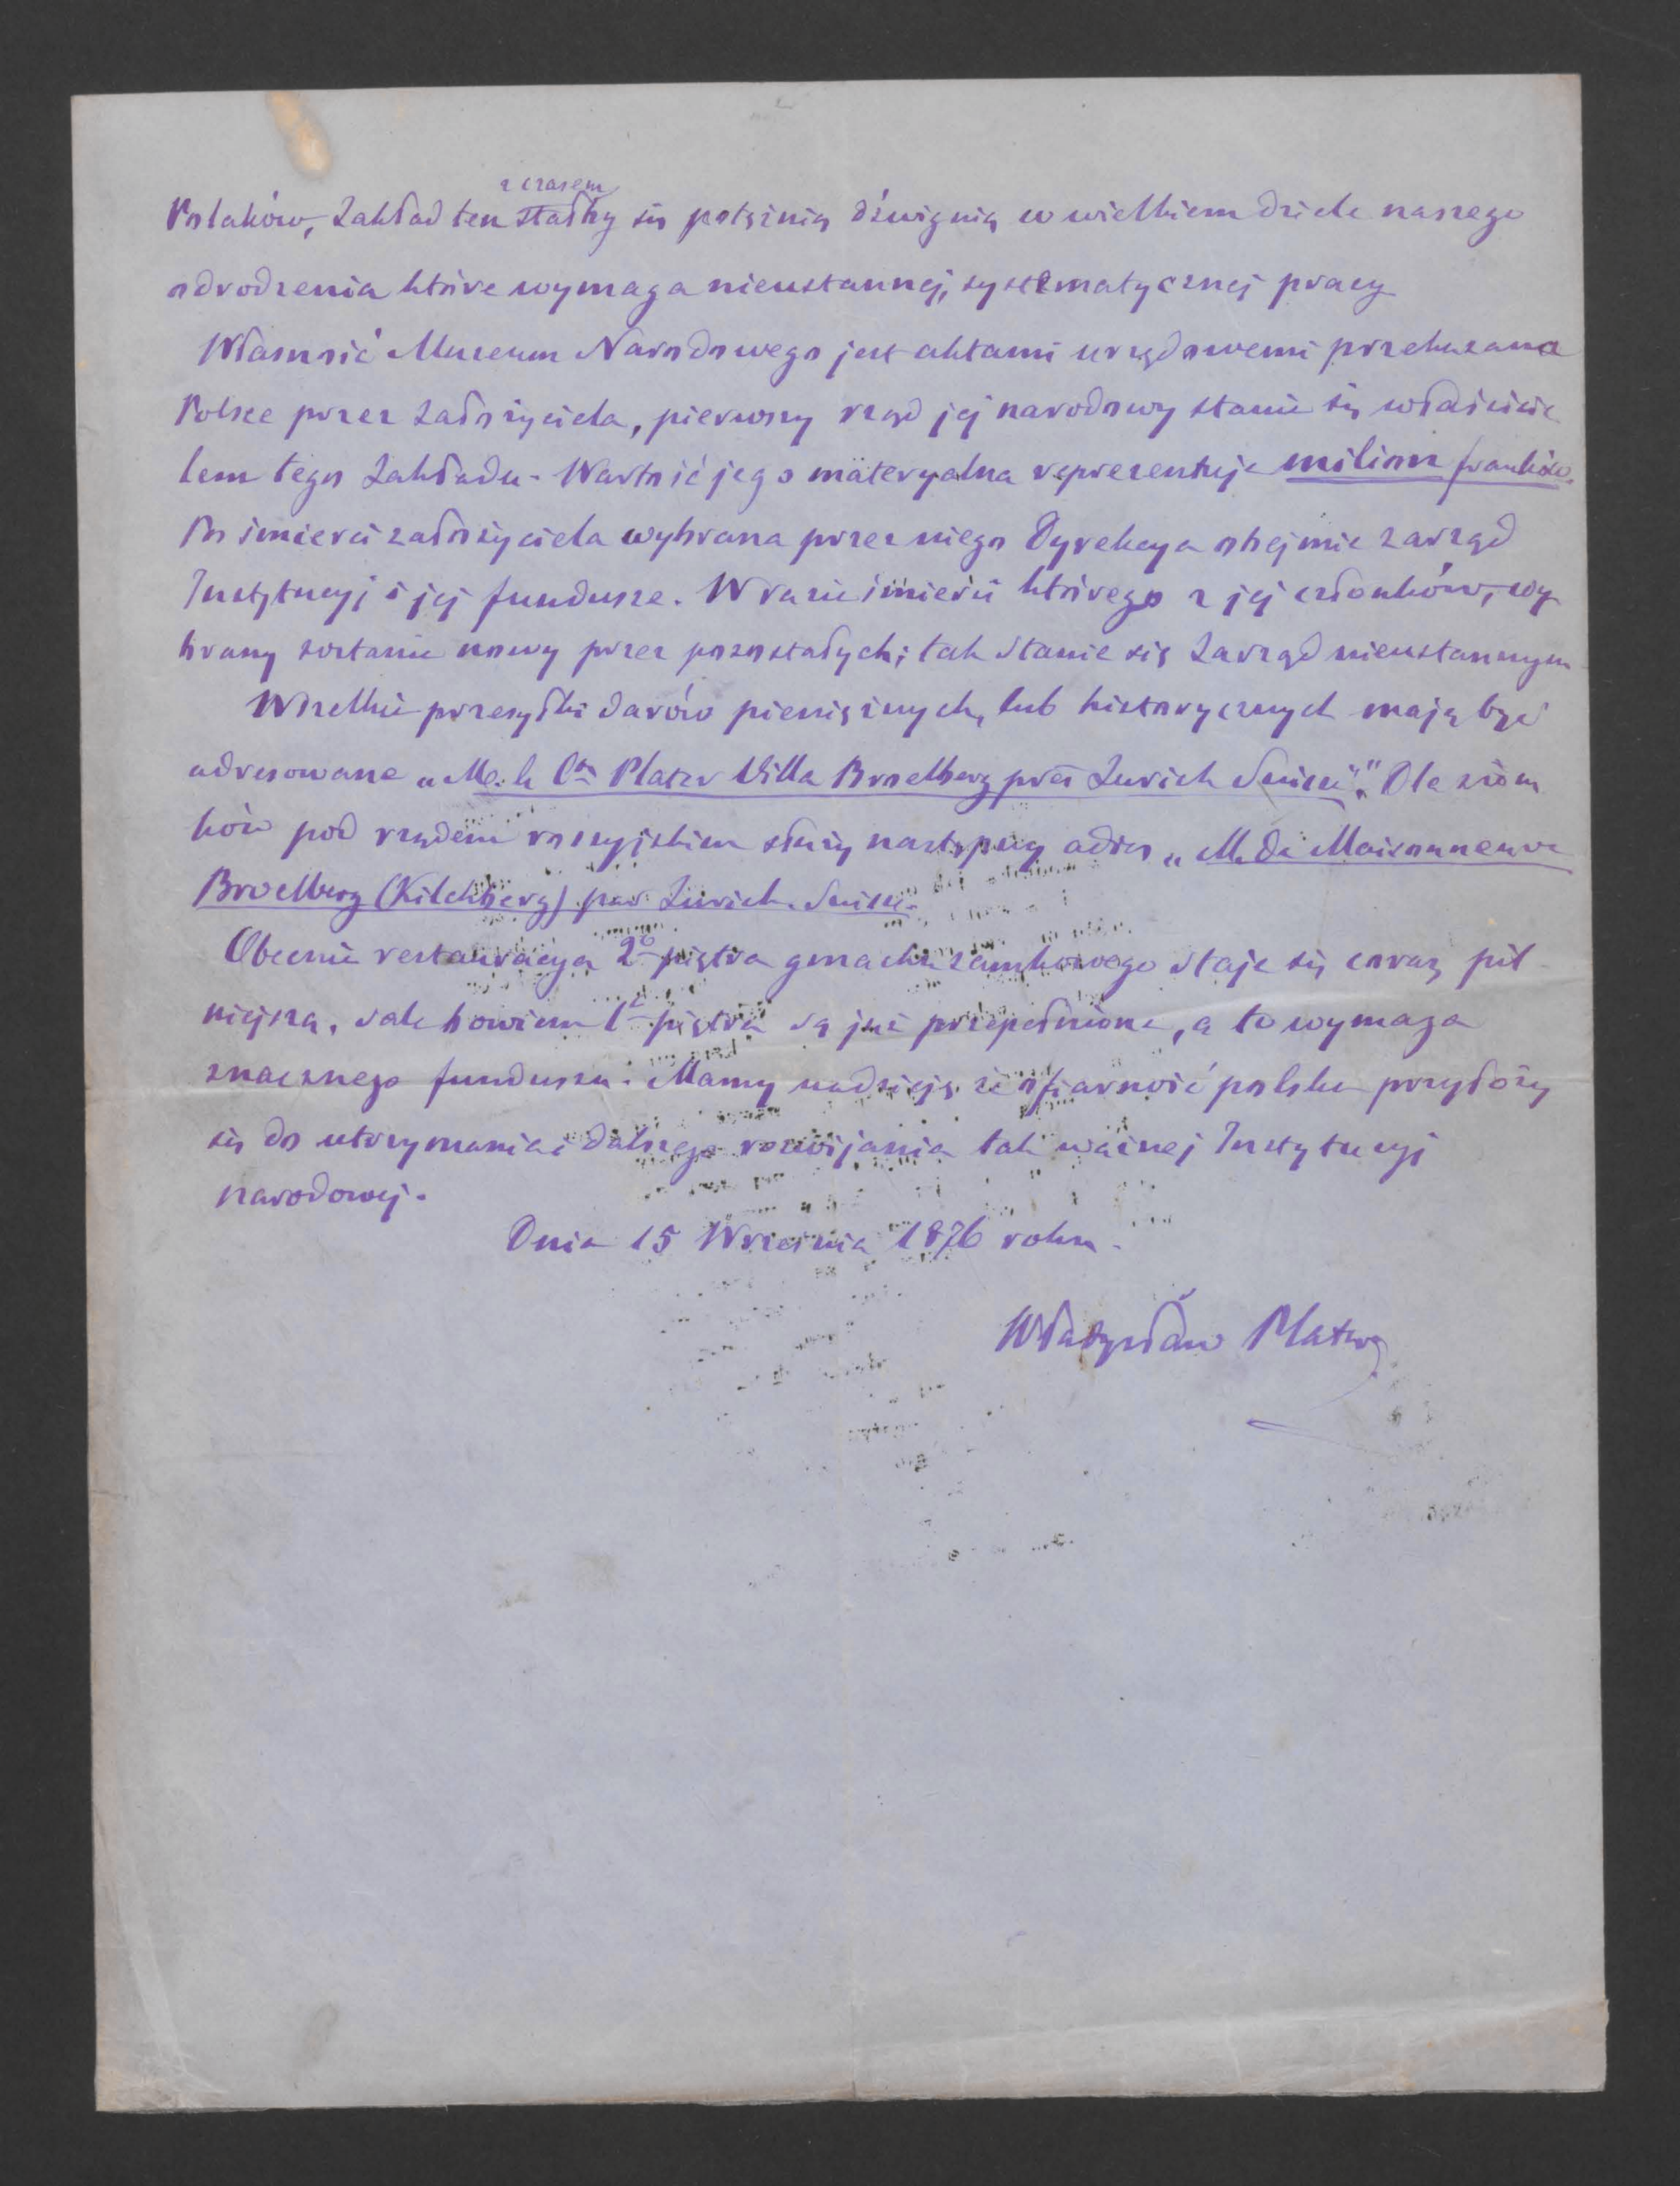 z czasem
Polaków, Zakład ten stałby się potężnią dźwignią w wielkiem dziele naszego
odrodzenia które wymaga nieustannej, systematycznej pracy
Własność Museum Narodowego jest aktami urzędowemi przekazana
Polsce przez założyciela, pierwszy rząd jej narodowy stanie się właścicie
lem tego Zakładu - Wartość jego materyalna reprezentuje milion franków.
Po śmierci założyciela wybrana przez niego Dyrekcya obejmie zarząd
Instytucyj i jej fundusze. W razie śmierci którego z jej członków, wy
brany zostanie nowy przez pozostałych; tak stanie się Zarząd nieustannym
Wszelkie przesyłki darów pieniężnych, lub historycznych mają być
adresowane „M. le Cte Plater Villa Broelberg près Zurich Suisse". Dla ziom
ków pod rządem rossyjskiem służy następny adres „M. de Maisonneuve
Broelberg (Kilchberg) par Zurich. Suisse.
Obecnie restauracya 2o piętra gmachu zamkowego staje się coraz pil
niejszą, sale bowiem 1o piętra są już przepełnione, a to wymaga
znacznego funduszu. Mamy nadzieję że ofiarność polska przyłoży
się do utrzymania i dalszego rozwijania tak ważnej Instytucyj
narodowej.
Dnia 15 Września 1876 roku.
Władysław Plater